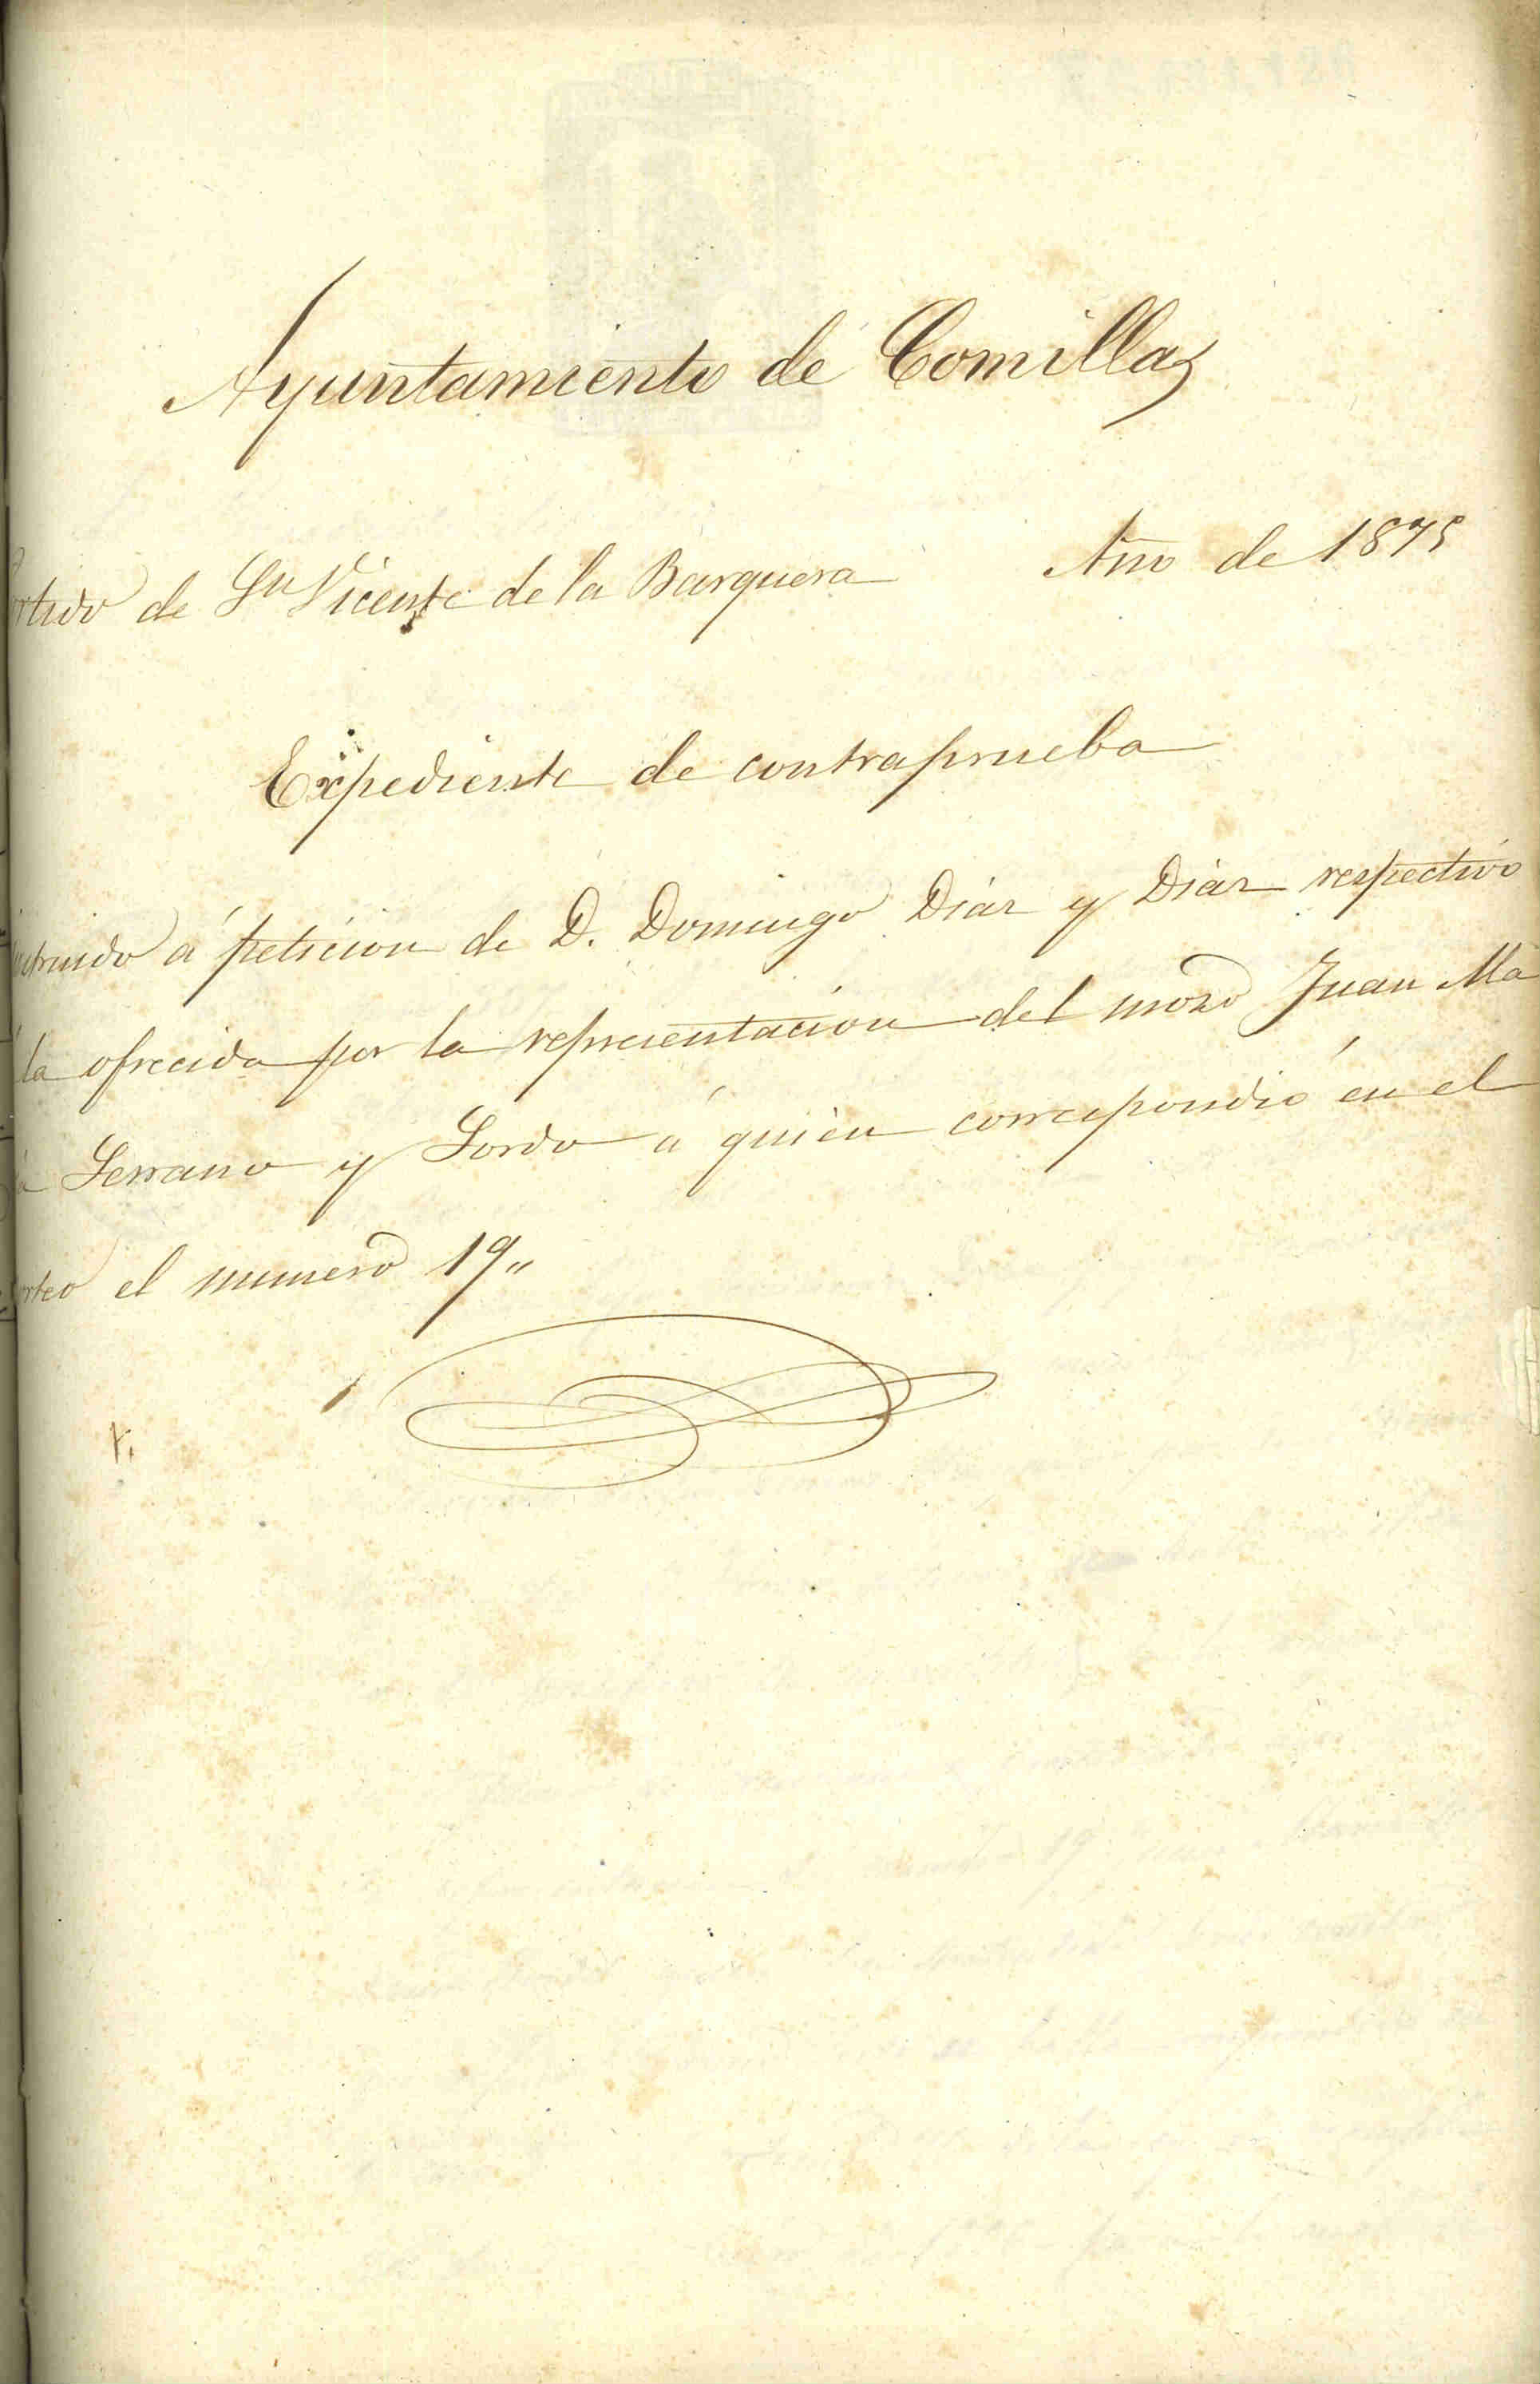 Ayuntamiento de Comillas
Partido de Sn Vicente de la Barquera Año de 1875
Expediente de contraprueba
instruido á peticion de D. Domingo Diaz y Diaz respectivo
á la ofrecida por la representacion del mozo Juan Ma
ria Serrano y Sordo á quien correspondió en el
sorteo el numero 19„